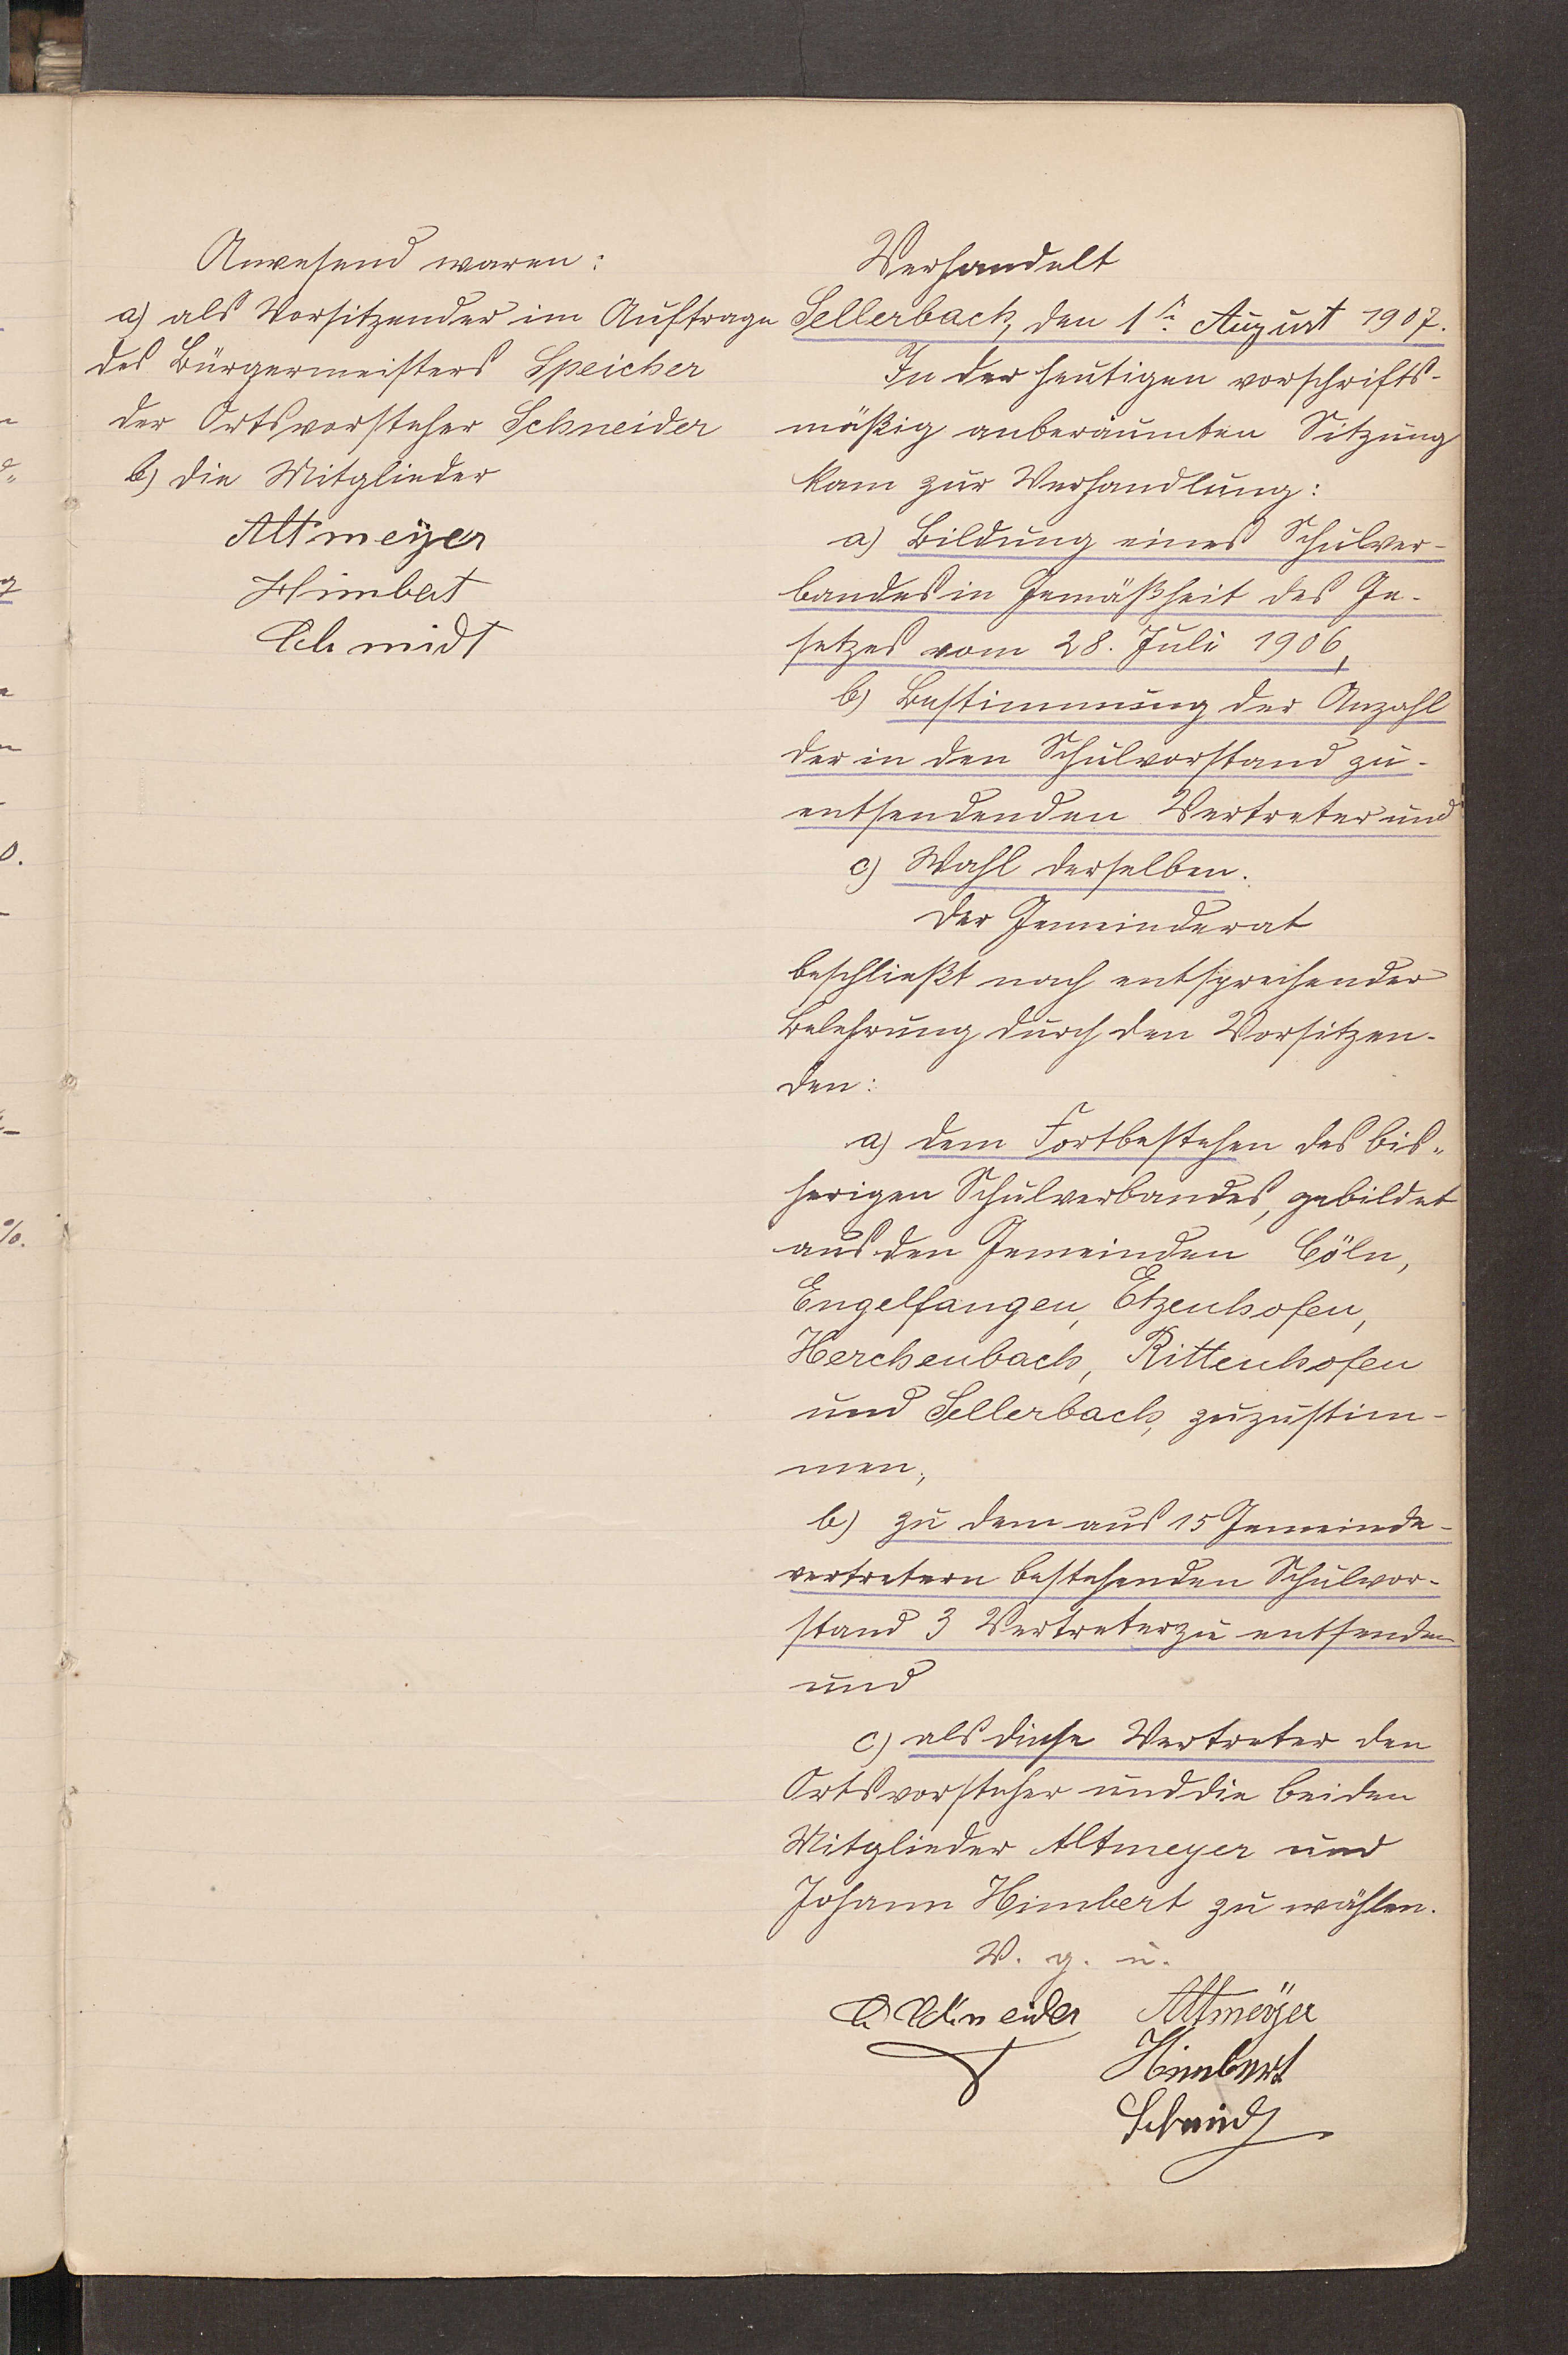 Anwesend waren:
a) als Vorsitzender im Auftrage
des Bürgermeisters Speicher
der Ortsvorsteher Schneider
b) die Mitglieder
Altmeÿer
Himbert
Schmidt
Verhandelt
Sellerbach, den 1ten August 1907.
In der heutigen vorschrifts-
mäßig anberaumten Sitzung
kam zur Verhandlung:
a) Bildung eines Schulver-
bandes in Gemäßheit des Ge-
setzes vom 28. Juli 1906,
b) Bestimmung der Anzahl
der in den Schulvorstand zu-
entsendenden Vertreter und
c) Wahl derselben.
Der Gemeinderat
beschließt nach entsprechender
Belehrung durch den Vorsitzen-
den:
a) dem Fortbestehen des bis-
herigen Schulverbandes, gebildet
aus den Gemeinden Cöln,
Engelfangen, Etzenhofen,
Herchenbach, Rittenhofen
und Sellerbach, zuzustim-
men,
b) zu dem aus 15 Gemeinde-
vertretern bestehenden Schulvor-
stand 3 Vertreter zu entsenden
und
c) als diese Vertreter den
Ortsvorsteher und die beiden
Mitglieder Altmeyer und
Johann Himbert zu wählen.
V. g. u.
Schneider Altmeÿer
Himbert
Schmidt